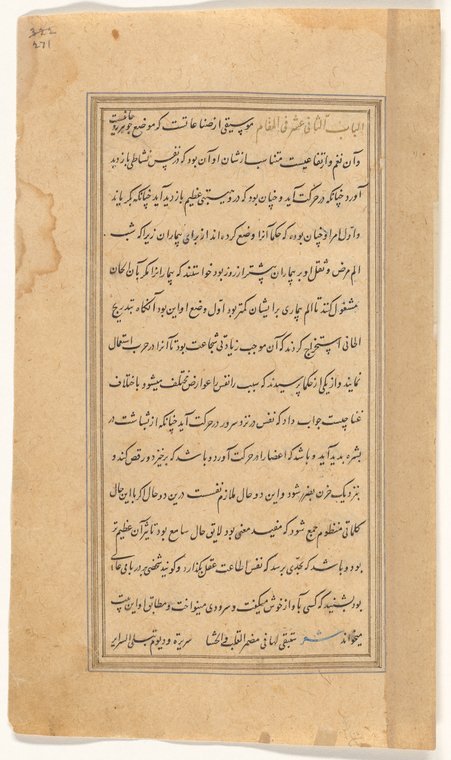 ۳۴۴
۲۷۱
الباب الثانی عشر فی المقام موسیقی از صناعا تست که موضع جوهر
و آن نغم و ایقاعیت متناسب از شان او آن بود که در نفس نشاطی بازدید
آورد خپانکه در حرکت آید و خپان بود که در و عظیم بازدید آید خپانکه بکریاند
و اول امر او خپان بوده که حکما آنرا وضع کرده اند از برای بیماران زیرا که شب
الم مرض و ثقل او بر بیماران پشتر از روز بود خواستند که بیمارانرا بکر بآن الحان
مشغول کنند تا الم بیماری برایشان کمتر بود اول وضع او این بود آنگاه بتدریج
الحانی استخراج کردند که آن موجب زیادتی شجاعت بود تا آنرا در حرب استعمال
نمایند و از یکی از حکما پرسیدند که سبب را نفس را عوارض مختلف میشود باختلاف
غنا چیست جواب داد که نفس در نزد سرور در حرکت آید خپانکه از بشاشت در
بشره بدید آید و باشد که اعضا را در حرکت آورد و باشد که برخیزد و رقص کند و
بنزدیک حزن بضرر شود و این دو حال ملازم نفست درین دو حال اکر با این حال
کلماتی منظوم جمع شود که مفید معنی بود لایق حال سامع بود تاثیر آن عظیم تر
بود و باشد که بحدی برسد که نفس اطاعت عقل بگذارد و گویند شخصی بر در بامی عالی
بود بشنید که کسی بآواز خوش میکفت و سرودی مینواخت و مطابق او این بیت
میخواند شعر ستبقی لها فی مضمر القلب و الحشا سریرة و د یوم تبلی السرایر